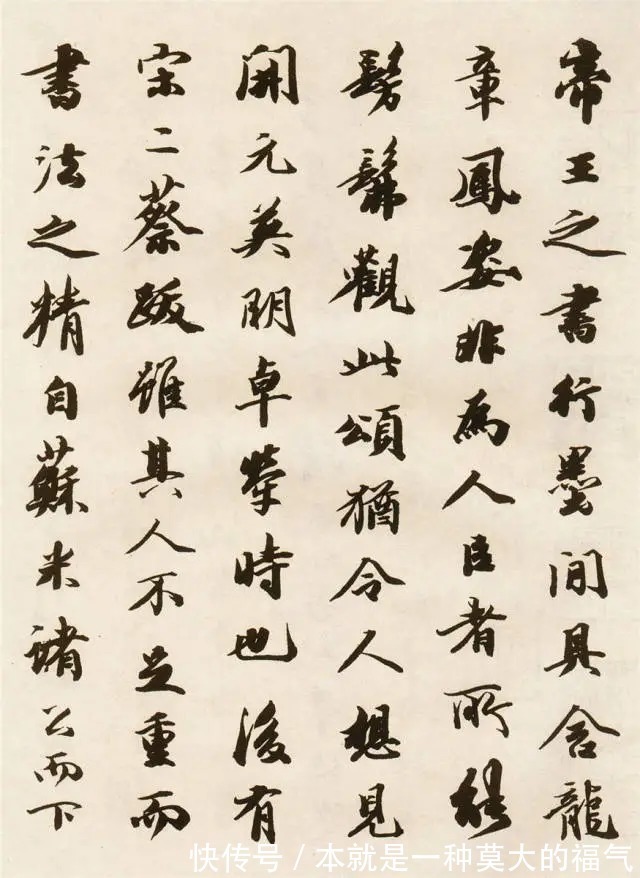 帝王之書行墨間具含龍
章鳳姿非為人臣者所能
髣髴觀此頌猶令人想見
開元英明卓犖時也後有
宋二蔡跋雖其人不足重而
書法之精自蘇米諸公而下
快传号/本就是一种莫大的福气